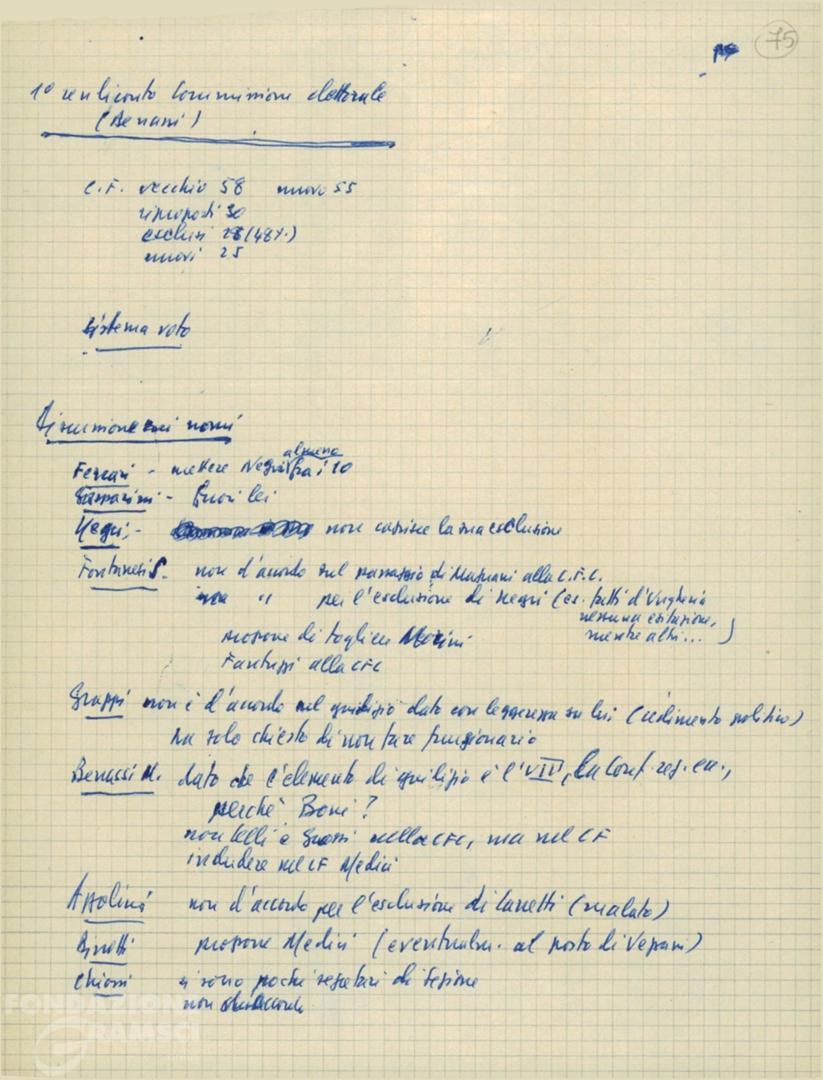 75
1° rendiconto Commissione elettorale
(Benassi)
C.F. vecchio 58 nuovo 55
riproposti 30
esclusi 28 (48%)
nuovi 25
Sistema voto
Discussione sui nomi
Ferrari - mettere Negri almeno fra i 10
- fuori lei
Negri, - non capisce la sua esclusione
Fontanesi S. non d'accordo sul passaggio di alla C.F.C.
non " per l'esclusione di Negri (es. fatti d'Ungheria
nessuna esitazione,
mentre altri...)
propone di togliere Morini
Fantuzzi alla CFC
Grappi non è d'accordo sul giudizio dato con leggerezza su lui (cedimento politico)
ha solo chiesto di non fare funzionario
Benassi M. dato che l'elemento di giudizio è l'VIII, la Conf. reg. em.,
perchè Boni?
nella CFC, ma nel CF
includere nel CF Medici
Attolini non d'accordo per l'esclusione di (malato)
propone Medici (eventualm. al posto di Vezzani)
Chiossi vi sono pochi segretari di sezione
non
FONDAZIONE
GRAMSCI